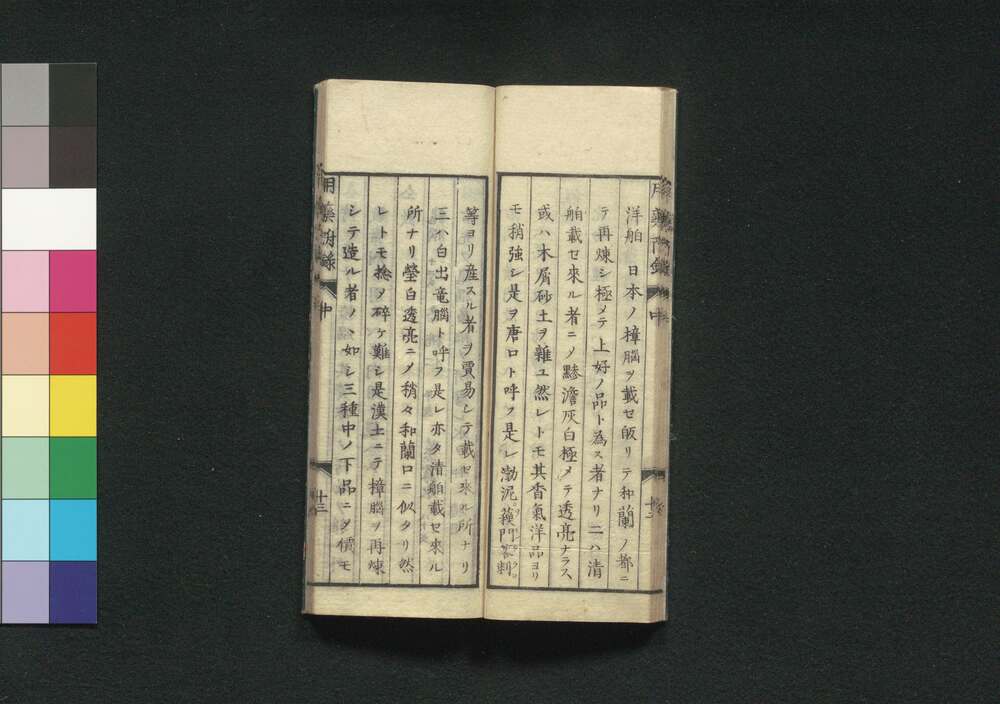 洋舶 日本ノ樟脳ヲ載セ皈リテ和蘭ノ都ニ
テ再煉シ極メテ上好ノ品ト為ス者ナリ二ハ清
舶載セ來ル者ニメ黲澹灰白極メテ透亮ナラス
或ハ木屑砂土ヲ雜ユ然レトモ其香氣洋品ヨリ
モ稍強シ是ヲ唐口ト呼フ是レ渤泥
等ヨリ産スル者ヲ賈易シテ載セ來ル所ナリ
三ハ白出竜脳ト呼フ是レ亦タ清舶載セ來ル
所ナリ瑩白透亮ニメ稍々和蘭口ニ似タリ然
レトモ捻メ碎ケ難シ是漢土ニテ樟脳ヲ再煉
シテ造ル者ノヽ如シ三種中ノ下品ニメ價モ
用藥附録 中
十三